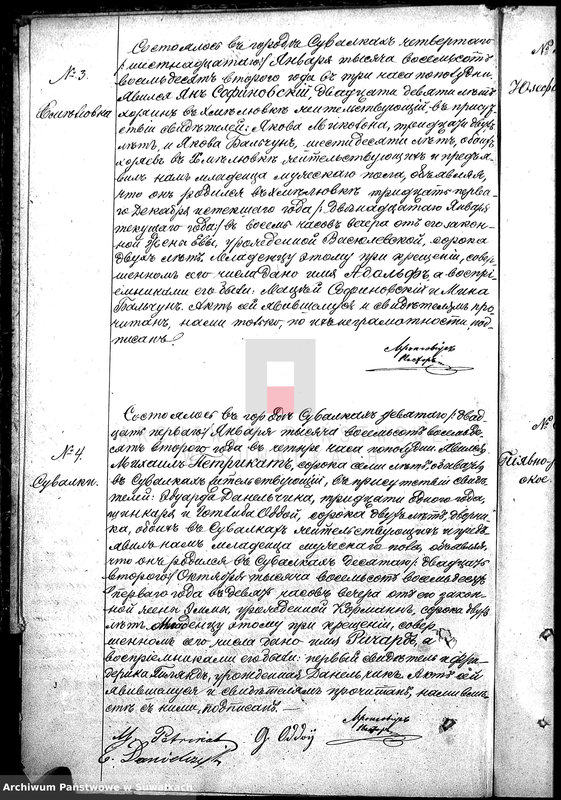 Состоялось въ городѣ Сувалкахъ четвертаго
/:шестнадцатаго/ Января тысяча восемьсотъ
восемьдесятъ втораго года въ три часа пополудни.
№ 3.
Явился Янъ Софиновскій, двадцати девяти лѣтъ
хозяинъ въ жительствующій, въ присут
ствіи свидѣтелей: Якова тридцати двухъ
лѣтъ, и Якова Бальчунъ, шестидесяти лѣтъ, обоихъ
хозяевъ въ жительствующихъ и предъя
вилъ намъ младенца мужескаго пола, объявляя,
что онъ родился въ тридцать перва
го Декабря истекшаго года /:двѣнадцатаго Января
текущаго года:/ въ восемь часовъ вечера отъ его закон
ной жены Евы, урожденной Василевской, сорока
двухъ лѣтъ. Младенцу этому при крещеніи, совер
шенномъ сего числа дано имя Адольфъ, а воспріе
мниками его были: Мацѣй Софиновскій и
Бальчунъ. Актъ сей явившемуся и свидѣтелямъ про
читанъ, нами только, по ихъ неграмотности, под
писанъ.
Пасторъ
Состоялось въ городѣ Сувалкахъ девятаго /:двад
цать перваго/ Января тысяча восемьсотъ восемьде
№ 4.
сятъ втораго года въ четыре часа пополудни. Явился
Сувалки.
Михаилъ Петрикатъ, сорока семи лѣтъ,
въ Сувалкахъ жительствующій, въ присутствіи свидѣ
телей: Эдуарда Данельчика, тридцати одного года,
и Готлиба Оддой, сорока двухъ лѣтъ,
обоихъ въ Сувалкахъ жительствующихъ и предъ
явилъ намъ младенца мужескаго пола, объявляя,
что онъ родился въ Сувалкахъ десятаго /:двадцать
втораго/ Октября тысяча восемьсотъ восемьдесятъ
перваго года въ девять часовъ вечера отъ его закон
ной жены Эммы, урожденной Германнъ, сорока двухъ
лѣтъ. Младенцу этому при крещеніи, совер
шенномъ сего числа дано имя Ричардъ, а
воспріемниками его были: первый свидѣтель и Фри
дерика урожденная Данельчикъ. Актъ сей
явившемуся и свидѣтелямъ прочитанъ, нами вмѣ
стѣ съ ними, подписанъ. —
M Petrikat G. Oddoy
Пасторъ
E. Danielczyk
№
№
Archiwum Państwowe w Suwałkach